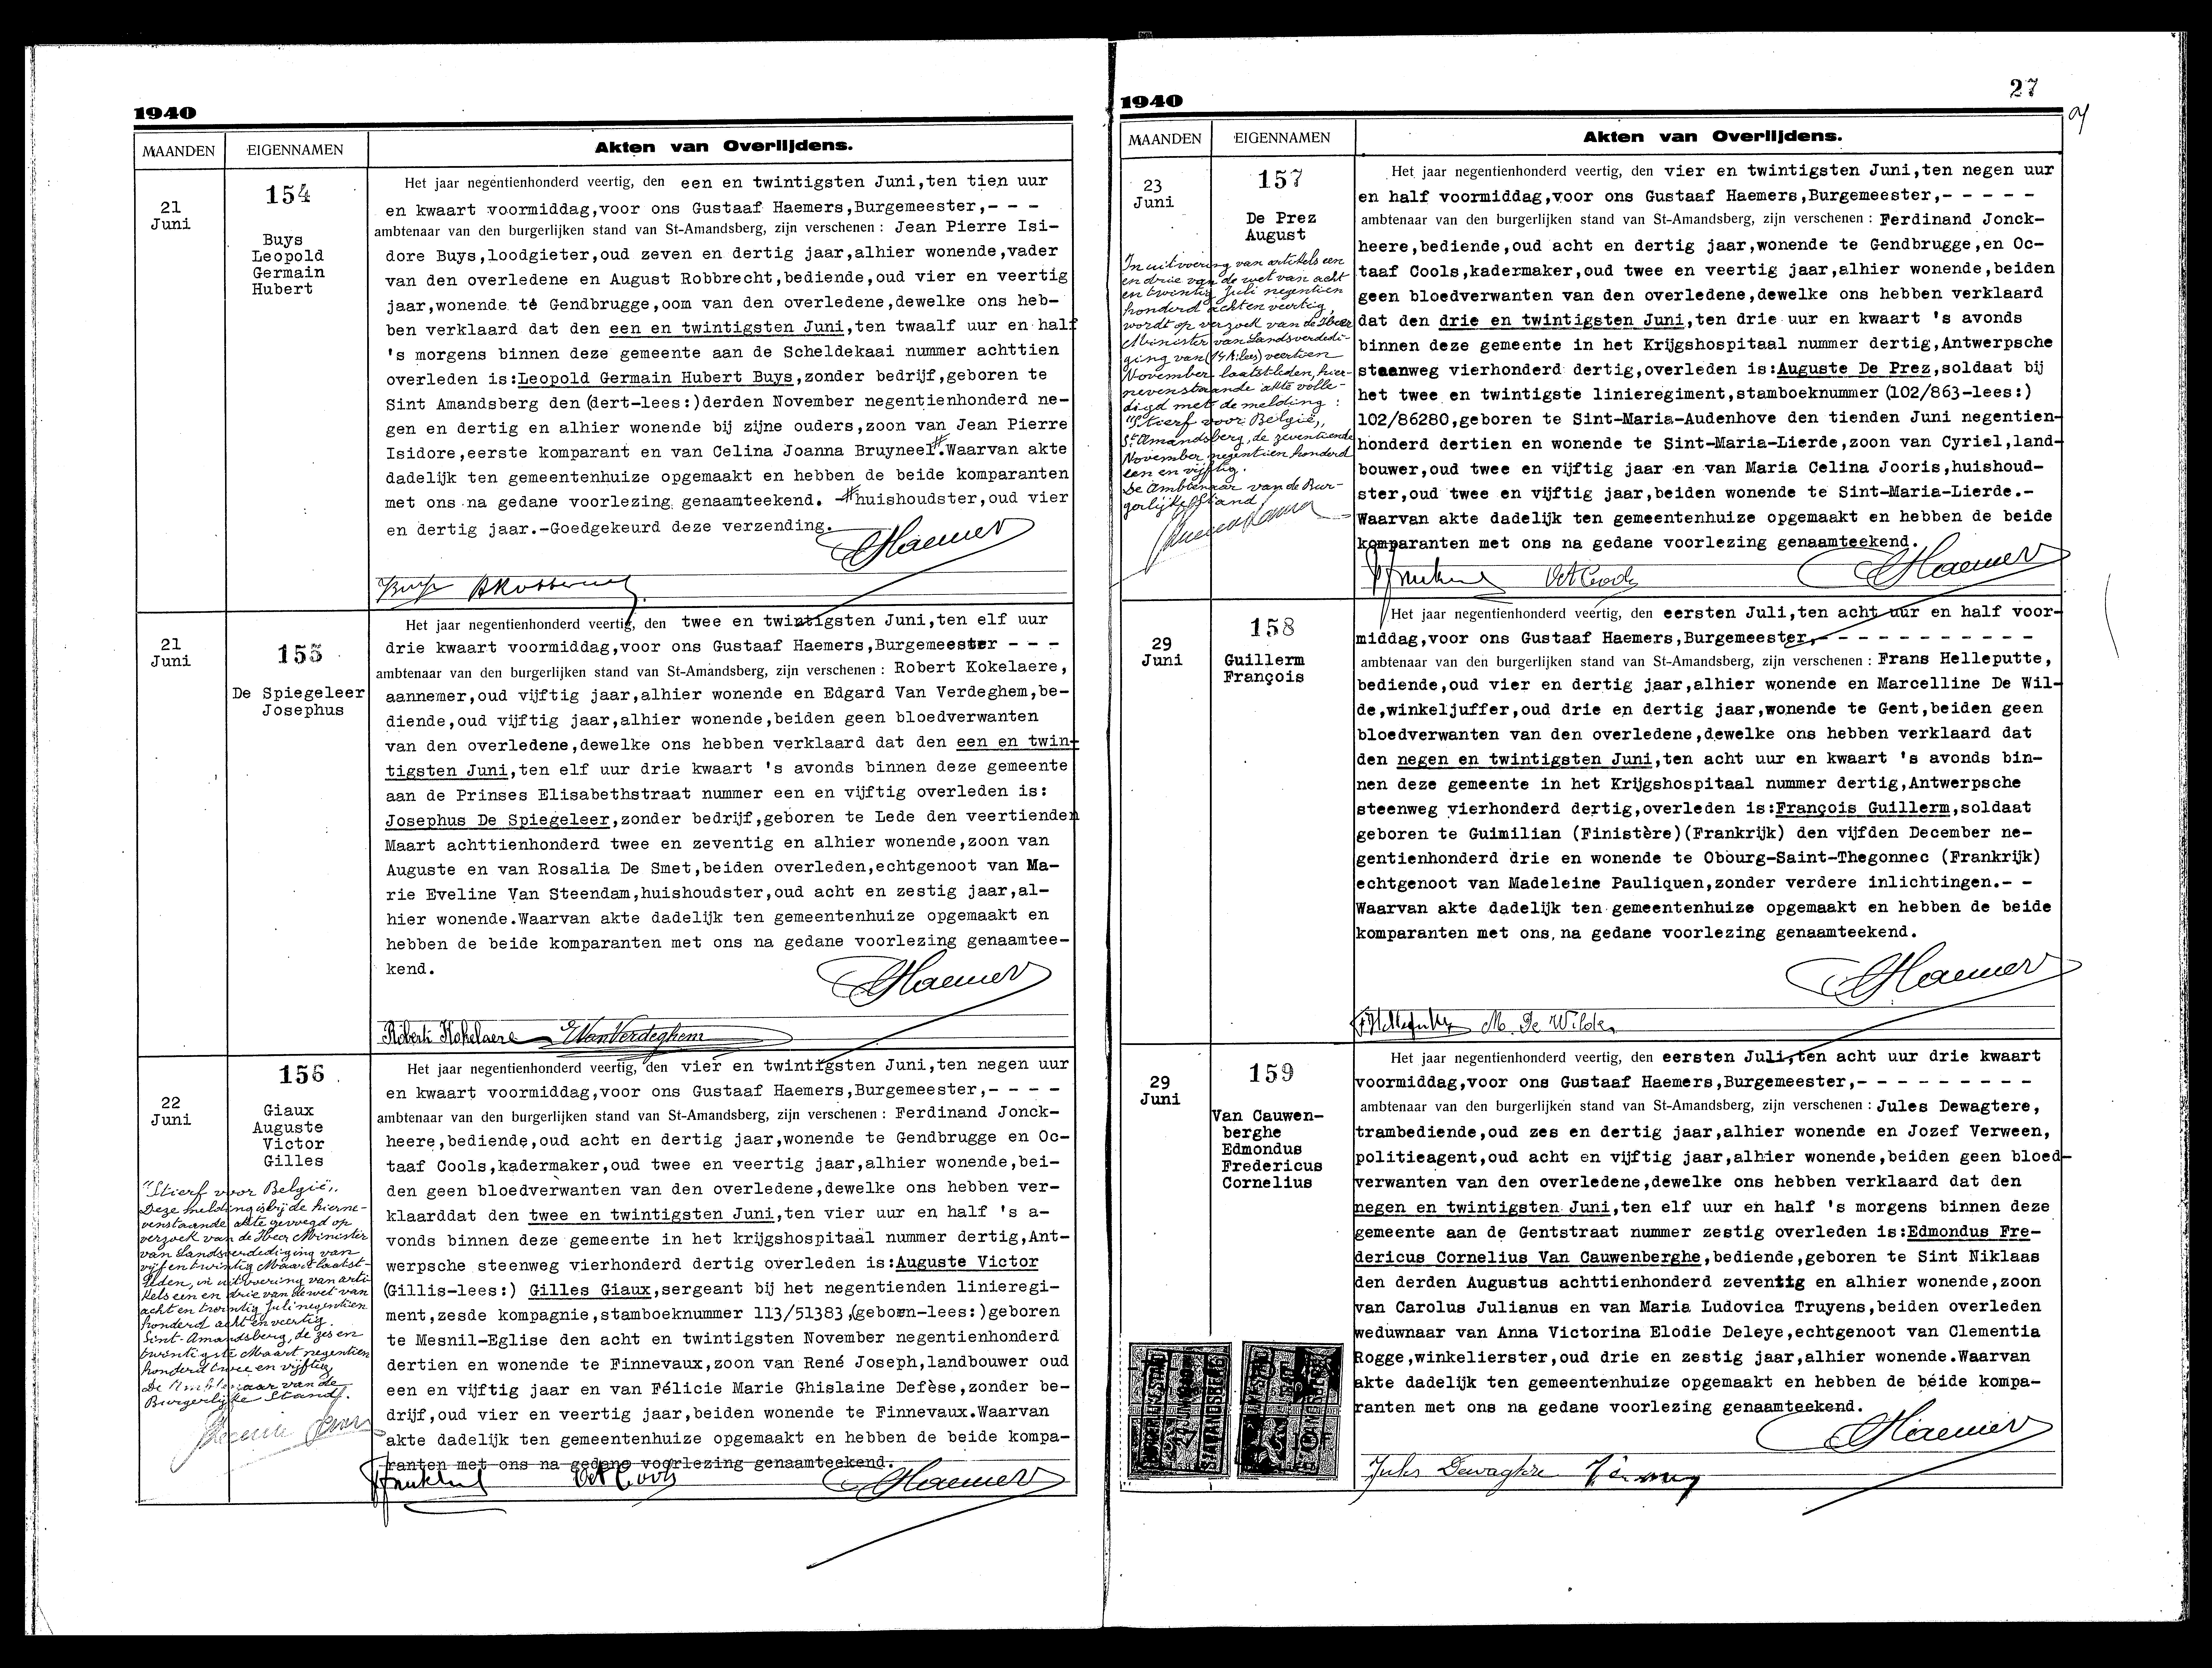 1940
MAANDEN
EIGENNAMEN
Akten van Overlijdens.
21
Juni
154
Buys
Leopold
Germain
Hubert
Het jaar negentienhonderd veertig, den een en twintigsten Juni,ten tien uur
en kwaart voormiddag,voor ons Gustaaf Haemers,Burgemeester,- - -
ambtenaar van den burgerlijken stand van St-Amandsberg, zijn verschenen : Jean Pierre Isi-
dore Buys,loodgieter,oud zeven en dertig jaar,alhier wonende,vader
van den overledene en August Robbrecht,bediende,oud vier en veertig
jaar,wonende te Gendbrugge,oom van den overledene,dewelke ons heb-
ben verklaard dat den een en twintigsten Juni,ten twaalf uur en half
's morgens binnen deze gemeente aan de Scheldekaai nummer achttien
overleden is:Leopold Germain Hubert Buys,zonder bedrijf,geboren te
Sint Amandsberg den (dert-lees:)derden November negentienhonderd ne-
gen en dertig en alhier wonende bij zijne ouders,zoon van Jean Pierre
Isidore,eerste komparant en van Celina Joanna Bruyneel#.Waarvan akte
dadelijk ten gemeentenhuize opgemaakt en hebben de beide komparanten
met ons na gedane voorlezing genaamteekend. -#huishoudster,oud vier
en dertig jaar.-Goedgekeurd deze verzending.
GHaemers
Buys
ARobbrecht
21
Juni
155
De Spiegeleer
Josephus
Het jaar negentienhonderd veertig, den twee en twintigsten Juni,ten elf uur
drie kwaart voormiddag,voor ons Gustaaf Haemers,Burgemeester - - -
ambtenaar van den burgerlijken stand van St-Amandsberg, zijn verschenen : Robert Kokelaere,
aannemer,oud vijftig jaar,alhier wonende en Edgard Van Verdeghem,be-
diende,oud vijftig jaar,alhier wonende,beiden geen bloedverwanten
van den overledene,dewelke ons hebben verklaard dat den een en twin-
tigsten Juni,ten elf uur drie kwaart 's avonds binnen deze gemeente
aan de Prinses Elisabethstraat nummer een en vijftig overleden is:
Josephus De Spiegeleer,zonder bedrijf,geboren te Lede den veertienden
Maart achttienhonderd twee en zeventig en alhier wonende,zoon van
Auguste en van Rosalia De Smet,beiden overleden,echtgenoot van Ma-
rie Eveline Van Steendam,huishoudster,oud acht en zestig jaar,al-
hier wonende.Waarvan akte dadelijk ten gemeentenhuize opgemaakt en
hebben de beide komparanten met ons na gedane voorlezing genaamtee-
kend.
GHaemers
Robert Kokelaere
E VanVerdeghem
22
Juni
156
Giaux
Auguste
Victor
Gilles
"Stierf voor België".
Deze melding is bij de hierne-
venstaande akte gevoegd op
verzoek van de Heer Minister
van Landsverdediging van
vijf en twintig Maart laatst-
leden, in uitvoering van arti-
kels een en drie van de wet van
acht en twintig Juli negentien
honderd acht en veertig.
Sint-Amandsberg, de zes en
twintigste Maart negentien
honderd twee en vijftig.
De Ambtenaar van de
Burgerlijke Stand.
Het jaar negentienhonderd veertig, den vier en twintigsten Juni,ten negen uur
en kwaart voormiddag,voor ons Gustaaf Haemers,Burgemeester,- - - -
ambtenaar van den burgerlijken stand van St-Amandsberg, zijn verschenen : Ferdinand Jonck-
heere,bediende,oud acht en dertig jaar,wonende te Gendbrugge en Oc-
taaf Cools,kadermaker,oud twee en veertig jaar,alhier wonende,bei-
den geen bloedverwanten van den overledene,dewelke ons hebben ver-
klaarddat den twee en twintigsten Juni,ten vier uur en half 's a-
vonds binnen deze gemeente in het krijgshospitaal nummer dertig,Ant-
werpsche steenweg vierhonderd dertig overleden is:Auguste Victor
(Gillis-lees:) Gilles Giaux,sergeant bij het negentienden linieregi-
ment,zesde kompagnie,stamboeknummer 113/51383,(geboen-lees:)geboren
te Mesnil-Eglise den acht en twintigsten November negentienhonderd
dertien en wonende te Finnevaux,zoon van René Joseph,landbouwer oud
een en vijftig jaar en van Félicie Marie Ghislaine Defèse,zonder be-
drijf,oud vier en veertig jaar,beiden wonende te Finnevaux.Waarvan
akte dadelijk ten gemeentenhuize opgemaakt en hebben de beide kompa-
ranten met ons na gedane voorlezing genaamteekend.
Oct Cools
GHaemers
27
1940
MAANDEN
EIGENNAMEN
Akten van Overlijdens.
23
Juni
157
De Prez
August
In uitvoering van artikels een
en drie van de wet van acht
en twintig Juli negentien
honderd achten veertig,
wordt op verzoek van de Heer
Minister van Landsverdedi-
ging van (14 h:lees) veertien
November laatstleden, hier-
nevenstaande akte volle-
digd met de melding :
"Stierf voor België".
St Amandsberg, de zeventiende
November negentien honderd
een en vijftig.
De Ambtenaar van de Bur-
gerlijke Stand
Het jaar negentienhonderd veertig, den vier en twintigsten Juni,ten negen uur
en half voormiddag,voor ons Gustaaf Haemers,Burgemeester,- - - - -
ambtenaar van den burgerlijken stand van St-Amandsberg, zijn verschenen : Ferdinand Jonck-
heere,bediende,oud acht en dertig jaar,wonende te Gendbrugge,en Oc-
taaf Cools,kadermaker,oud twee en veertig jaar,alhier wonende,beiden
geen bloedverwanten van den overledene,dewelke ons hebben verklaard
dat den drie en twintigsten Juni,ten drie uur en kwaart 's avonds
binnen deze gemeente in het Krijgshospitaal nummer dertig,Antwerpsche
steenweg vierhonderd dertig,overleden is:Auguste De Prez,soldaat bij
het twee en twintigste linieregiment,stamboeknummer (102/863-lees:)
102/86280,geboren te Sint-Maria-Audenhove den tienden Juni negentien-
honderd dertien en wonende te Sint-Maria-Lierde,zoon van Cyriel,land-
bouwer,oud twee en vijftig jaar en van Maria Celina Jooris,huishoud-
ster,oud twee en vijftig jaar,beiden wonende te Sint-Maria-Lierde.-
Waarvan akte dadelijk ten gemeentenhuize opgemaakt en hebben de beide
komparanten met ons na gedane voorlezing genaamteekend.
Oct Cools
GHaemers
29
Juni
158
Guillerm
François
Het jaar negentienhonderd veertig, den eersten Juli,ten acht uur en half voor-
middag,voor ons Gustaaf Haemers,Burgemeester,- - - - - - - - - -
ambtenaar van den burgerlijken stand van St-Amandsberg, zijn verschenen : Frans Helleputte,
bediende,oud vier en dertig jaar,alhier wonende en Marcelline De Wil-
de,winkeljuffer,oud drie en dertig jaar,wonende te Gent,beiden geen
bloedverwanten van den overledene,dewelke ons hebben verklaard dat
den negen en twintigsten Juni,ten acht uur en kwaart 's avonds bin-
nen deze gemeente in het Krijgshospitaal nummer dertig,Antwerpsche
steenweg vierhonderd dertig,overleden is:François Guillerm,soldaat
geboren te Guimilian (Finistère)(Frankrijk) den vijfden December ne-
gentienhonderd drie en wonende te Obourg-Saint-Thegonnec (Frankrijk)
echtgenoot van Madeleine Pauliquen,zonder verdere inlichtingen.- -
Waarvan akte dadelijk ten gemeentenhuize opgemaakt en hebben de beide
komparanten met ons na gedane voorlezing genaamteekend.
GHaemers
FHelleputte
M. De Wilde
29
Juni
159
Van Cauwen-
berghe
Edmondus
Fredericus
Cornelius
Het jaar negentienhonderd veertig, den eersten Juli,ten acht uur drie kwaart
voormiddag,voor ons Gustaaf Haemers,Burgemeester,- - - - - - - - -
ambtenaar van den burgerlijken stand van St-Amandsberg, zijn verschenen : Jules Dewagtere,
trambediende,oud zes en dertig jaar,alhier wonende en Jozef Verween,
politieagent,oud acht en vijftig jaar,alhier wonende,beiden geen bloed-
verwanten van den overledene,dewelke ons hebben verklaard dat den
negen en twintigsten Juni,ten elf uur en half 's morgens binnen deze
gemeente aan de Gentstraat nummer zestig overleden is:Edmondus Fre-
dericus Cornelius Van Cauwenberghe,bediende,geboren te Sint Niklaas
den derden Augustus achttienhonderd zeventig en alhier wonende,zoon
van Carolus Julianus en van Maria Ludovica Truyens,beiden overleden
weduwnaar van Anna Victorina Elodie Deleye,echtgenoot van Clementia
Rogge,winkelierster,oud drie en zestig jaar,alhier wonende.Waarvan
akte dadelijk ten gemeentenhuize opgemaakt en hebben de beide kompa-
ranten met ons na gedane voorlezing genaamteekend.
GHaemers
Jules Dewagtere